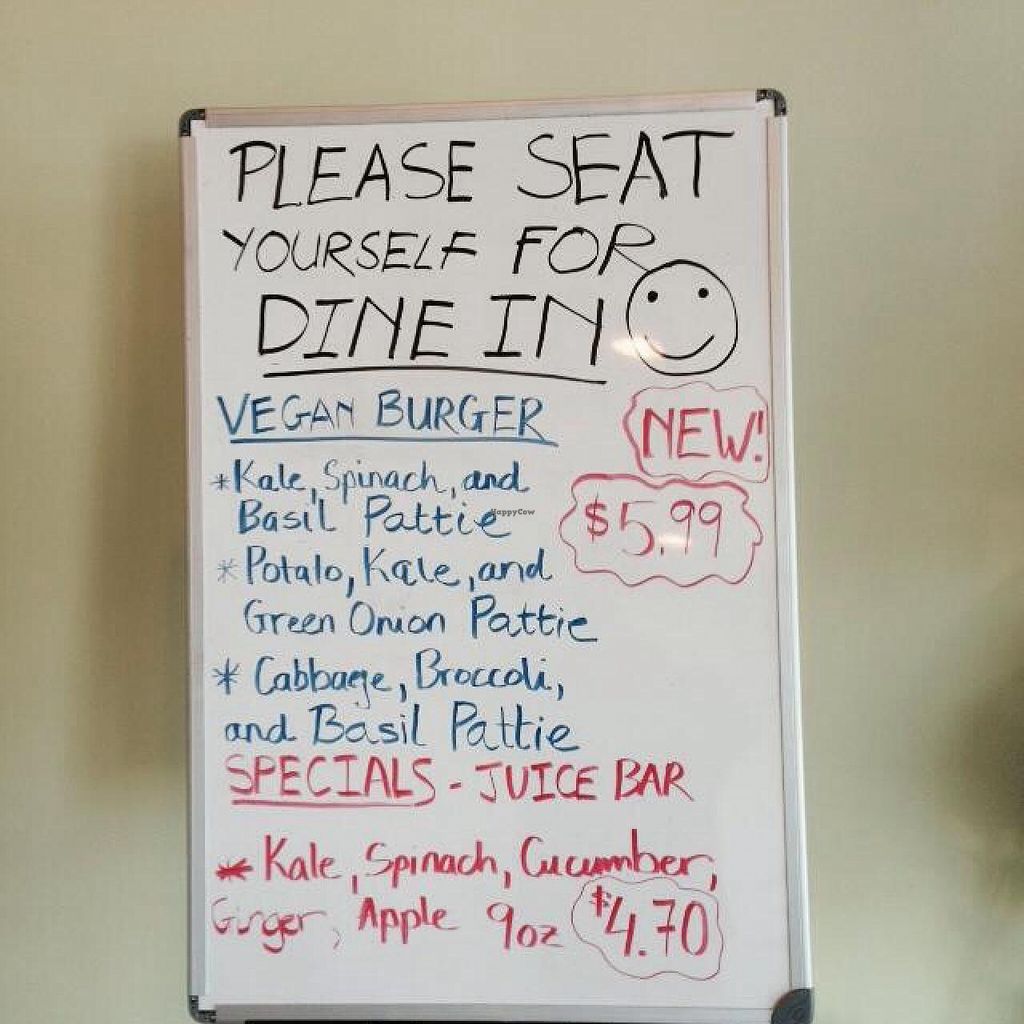 PLEASE SEAT
YOURSELF FOR
DINE IN
VEGAN BURGER
NEW!
*Kale, Spinach, and
Basil Pattie
$5.99
HappyCow
*Potalo, Kale, and
Green Onion Pattie
* Cabbage, Broccoli,
and Basil Pattie
SPECIALS - JUICE BAR
* Kale, Spinach, Cucumber,
Ginger, Apple 9oz $4.70